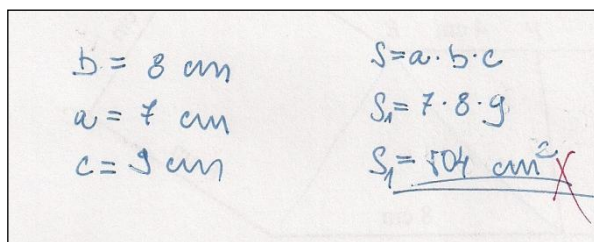 b = 8 cm
a = 7 cm
c = 9 cm
S = a · b · c
S₁ = 7 · 8 · 9
S₁ = 504 cm²